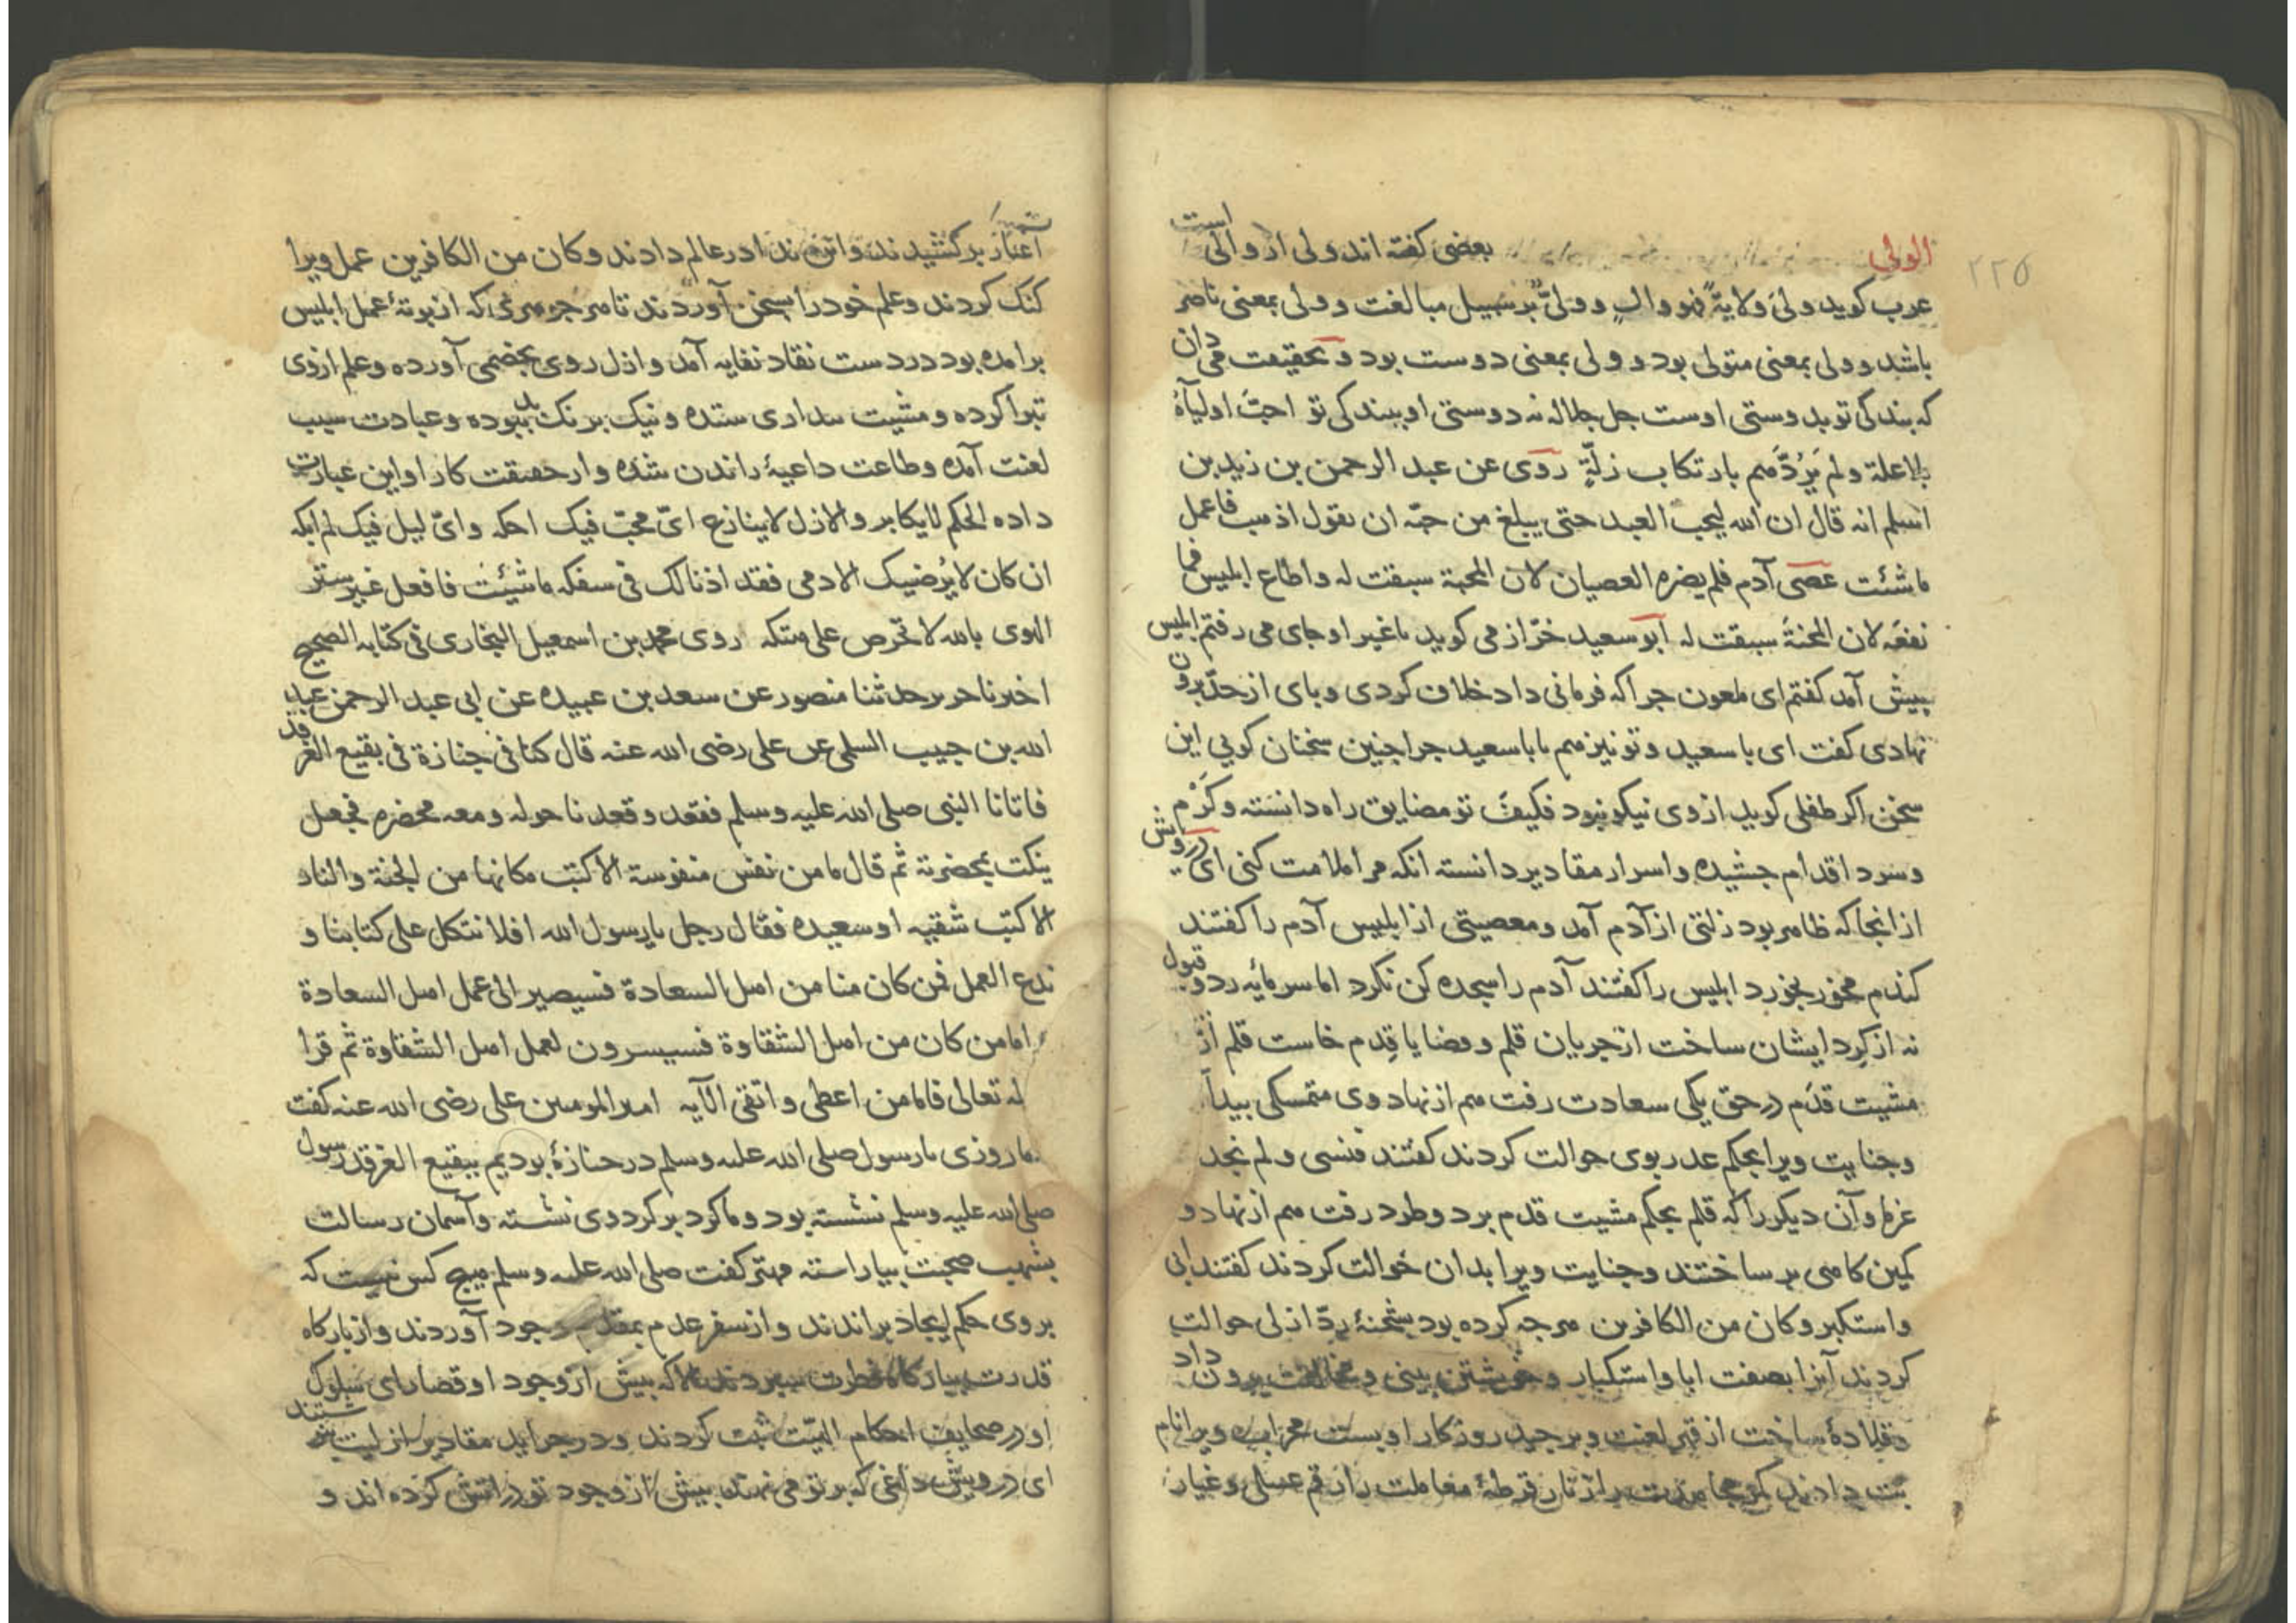 ۲۲۵
الولی بعضی کفته اند ولی از والی است
عرب کوید ولی ولایة فهو والٍ وولیٌّ بر سبیل مبالغت و ولی بمعنی ناصر
باشد و ولی بمعنی متولی بود و ولی بمعنی دوست بود و بحقیقت می دان
که بندکی تو بدوستی اوست جل جلاله نه دوستی او ببندکی تو احبّ اولیآءه
بلا علة ولم یَرُدَّهم بارتکاب زلّةٍ روی عن عبد الرحمن بن زید بن
اسلم انه قال ان الله لیحب العبد حتی یبلغ من حبّه ان یقول اذهب فاعمل
ما شئت عصی آدم فلم یضره العصیان لان المحبة سبقت له واطاع ابلیس فما
نفعه لان المحنة سبقت له ابو سعید خرّاز می کوید ما غیر او جای می رفتم ابلیس
پیش آمد کفتم ای ملعون جرا که فرمانی داد خلاف کردی و بای از حدّ برون
نهادی کفت ای با سعید و تو نیز هم یا با سعید جرا جنین سخنان کویی این
سخن اکر طفلی کوید از وی نیکو نبود فکیف تو مضایق راه دانسته و کَرْم
وسرد اقدام جشیده و اسرار مقادیر دانسته انکه مرا ملامت کنی ای درویش
از انجا که ظاهر بود زلتی از آدم آمد و معصیتی از ابلیس آدم را کفتند
کندم مخور بخورد ابلیس را کفتند آدم را سجده کن نکرد اما سرمایه رد و قبول
نه از کِرد ایشان ساخت از جریان قلم و قضایا قِدم خاست قلم از
مشیت قدَم در حق یکی سعادت رفت هم از نهاد وی متمسکی بیدا
وجنایت ویرا بحکم عذر بوی حوالت کردند کفتند فنسی ولم نجد
عزما و آن دیکر را که قلم بحکم مشیت قدم برد و طرد رفت هم از نهاد و
کمین کاهی بر ساختند و جنایت ویرا بدان حوالت کردند کفتند ابی
واستکبر وکان من الکافرین هرجه کرده بود بشحنهٔ ردّ ازلی حوالت
کردند آنرا بصفت ابا و استکبار و خویشتن بینی و مخالفت برون داد
قلادهٔ ساخت از قهر لعنت و بر جید روزکار او بست ویرا نام
قرطهٔ معاملت را رقم عسلی و غیار
اغیار برکشیدند در عالم دادند وکان من الکافرین عمل ویرا
کنک کردند و علم خود را بسخن آوردند تا هر جوهری که از بوتهٔ عمل ابلیس
برامده بود در دست نقاد نفایه آمد و ازل روی بخصمی آورده و علم از وی
تبرا کرده و مشیت ستده و نیک برنک بد ببوده و عبادت سبب
لعنت آمده و طاعت داعیهٔ راندن شده و از حقیقت کار او این عبارت
داده الحکم لا یکابر والازل لا ینازع ایّ محبّ فیک احکه وایّ لیل فیک لم ابکه
ان کان لا یُرضیک الا دمی فقد اذنا لک فی سفکه ما شئت فافعل غیر ستر
الهوی بالله لا تحرص علی هتکه روی محمد بن اسمعیل البخاری فی کتابه الصحیح
اخبرنا جریر حدثنا منصور عن سعد بن عبیده عن ابی عبد الرحمن عبد
الله بن حبیب السلمی عن علی رضی الله عنه قال کنا فی جنازة فی بقیع الغرقد
فاتانا النبی صلی الله علیه وسلم فقعد وقعدنا حوله ومعه مخصره فجعل
ینکت بمخصرته ثم قال ما من نفس منفوسة الا کتب مکانها من الجنة والنار
الا کتب شقیه او سعیده فقال رجل یا رسول الله افلا نتکل علی کتابنا و
ندع العمل فمن کان منا من اهل السعادة فسیصیر الی عمل اهل السعادة
و اما من کان من اهل الشقاوة فسییسرون لعمل اهل الشقاوة ثم قرا
له تعالی فاما من اعطی واتقی الآیه امیر المومنین علی رضی الله عنه کفت
ما روزی با رسول صلی الله علیه وسلم در جنازهٔ بودیم ببقیع الغرقد رسول
صلی الله علیه وسلم نشسته بود و ما کرد بر کرد وی نشسته و آسمان رسالت
بشهب صحبت بیاراسته مهتر کفت صلی الله علیه وسلم هیچ کس نیست که
بر وی حکم ایجاد براندند و از سفر عدم بمقدم وجود آوردند و از بارکاه
قدرت ببارکاه فطرت سبردند الا که بیش از وجود او قضا رای سلوک
او در صحایف احکام الهیّت ثبت کردند و در جراید مقادیر ازلیت
ای درویش داغی که بر تو می نهند بیش از وجود تو در اتش کرده اند و